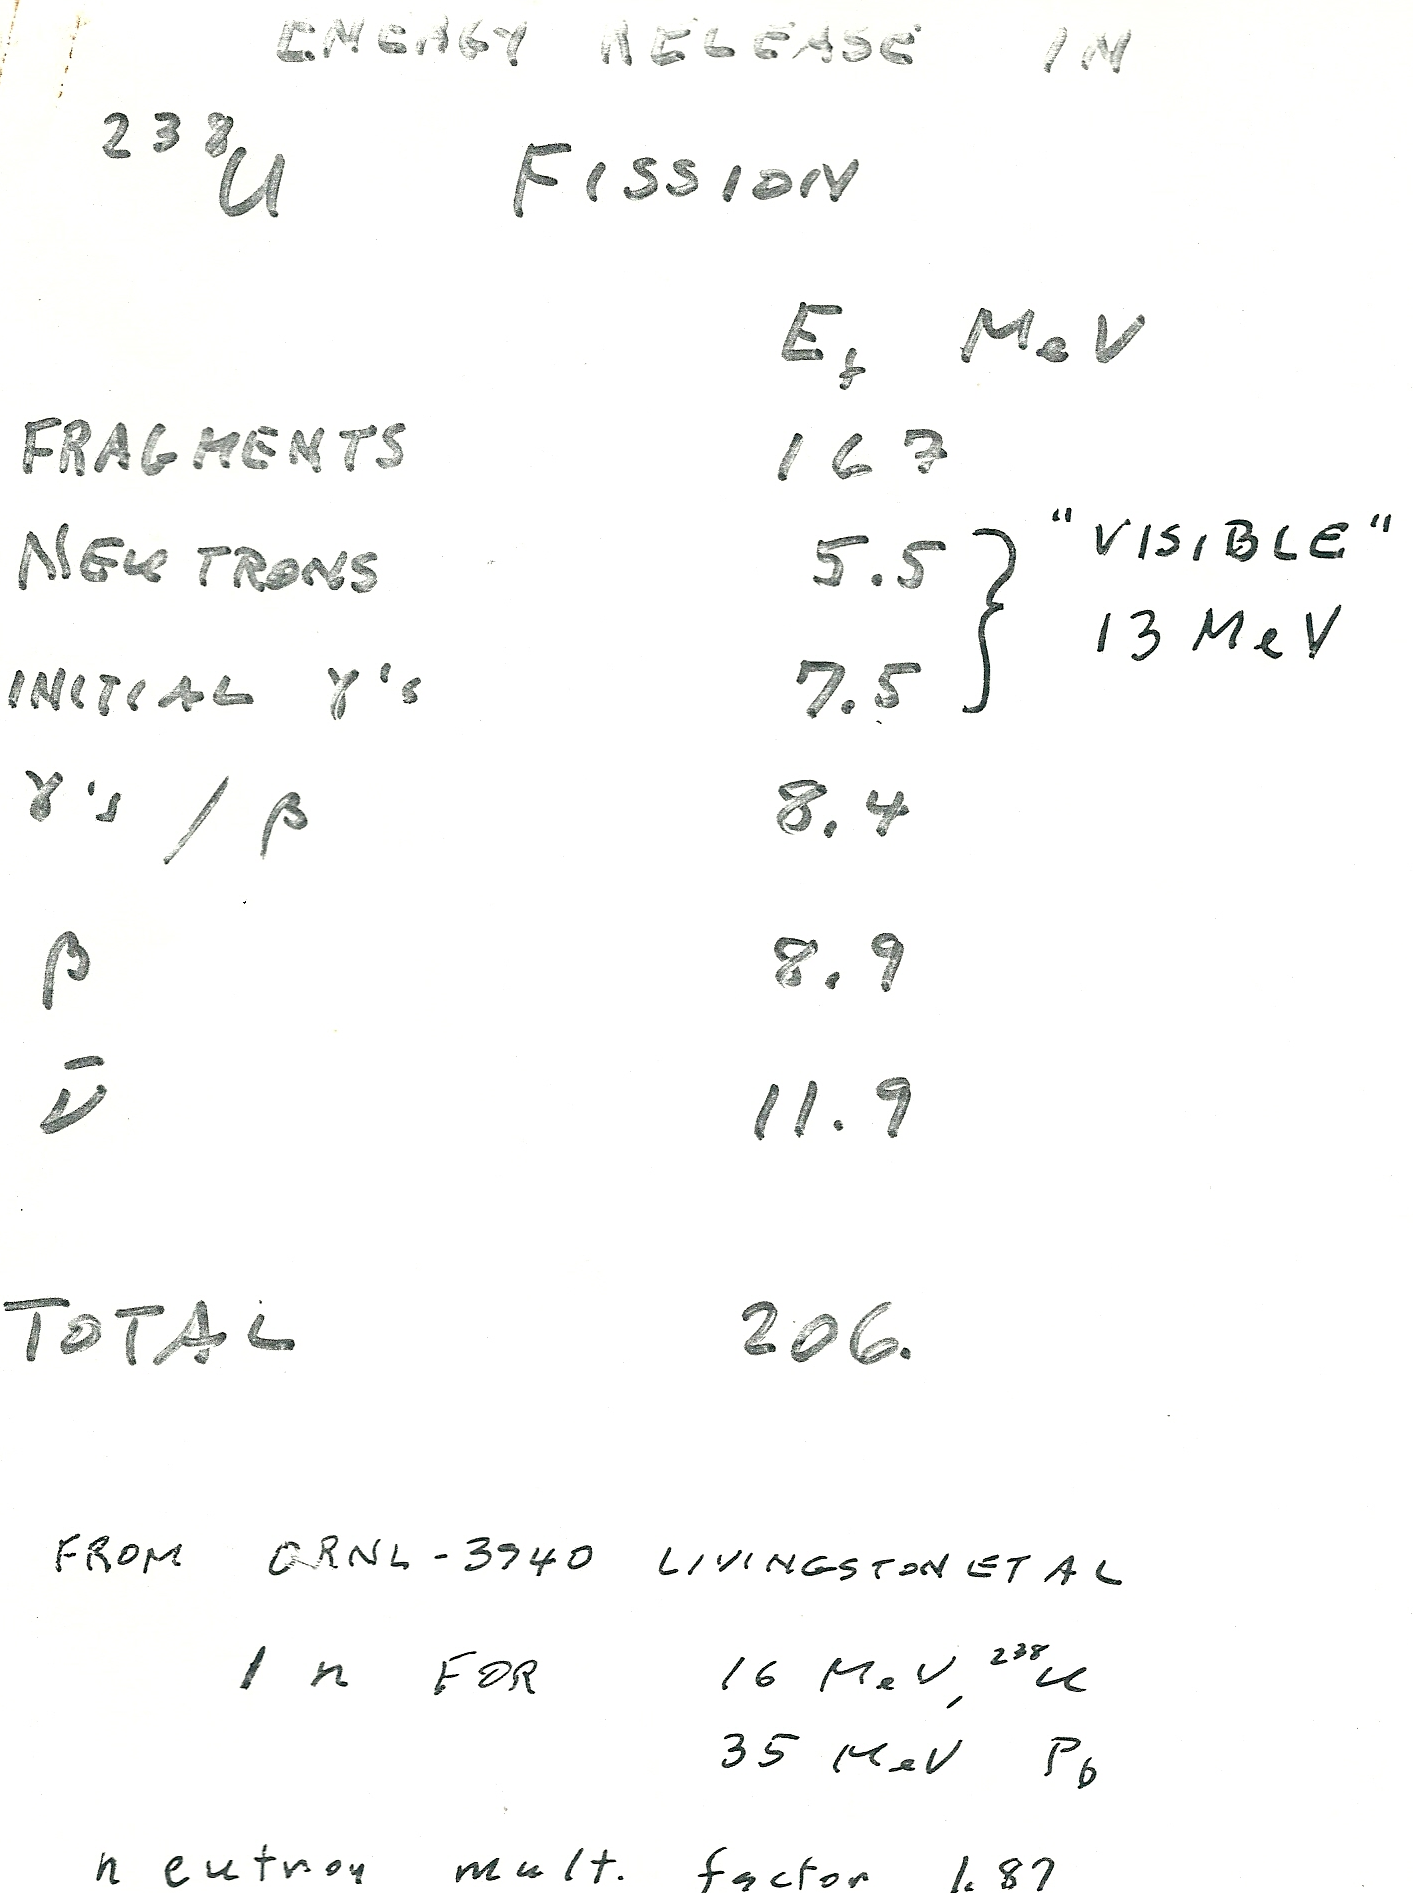 ENERGY RELEASE IN
²³⁸U FISSION
E_f MeV
FRAGMENTS 167
NEUTRONS 5.5 } "VISIBLE"
13 MeV
INITIAL γ's 7.5
γ's / β 8.4
β 8.9
ν̄ 11.9
TOTAL 206.
FROM ORNL-3940 LIVINGSTON ET AL
1 n FOR 16 MeV, ²³⁸U
35 MeV Pb
neutron mult. factor 1.87